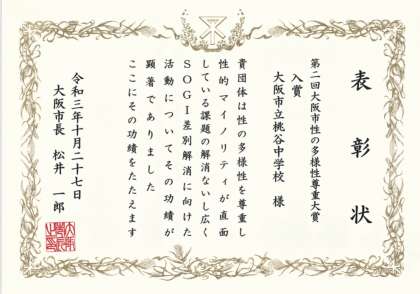 表彰状
第二回大阪市性の多様性尊重大賞
入賞
大阪市立桃谷中学校 様
貴団体は性の多様性を尊重し
性的マイノリティが直面
している課題の解消ないし広く
SOGI差別解消に向けた
活動についてその功績が
顕著でありました
ここにその功績をたたえます
令和三年十月二十七日
大阪市長 松井 一郎